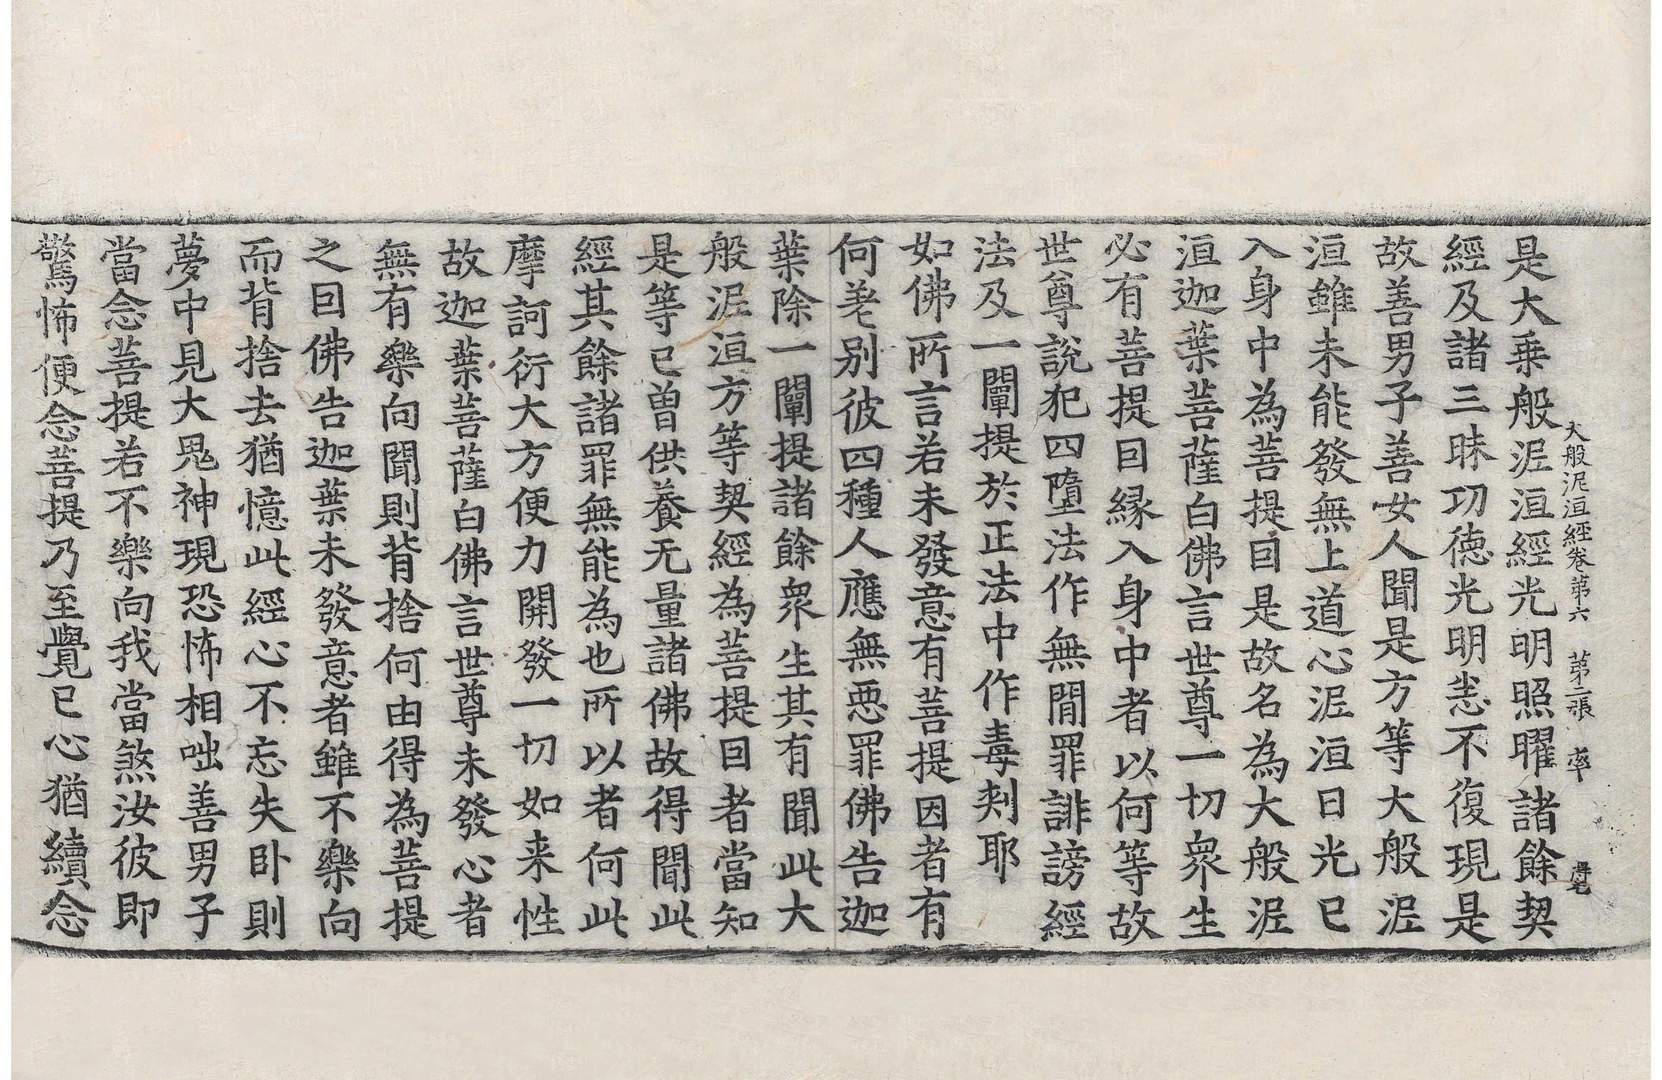 大般泥洹經卷第六　第二張　率
是大乘般泥洹經光明照曜諸餘契
經及諸三昧功德光明悉不復現是
故善男子善女人聞是方等大般泥
洹雖未能發無上道心泥洹日光已
入身中為菩提因是故名為大般泥
洹迦葉菩薩白佛言世尊一切衆生
必有菩提因縁入身中者以何等故
世尊說犯四墮法作無間罪誹謗經
法及一闡提於正法中作毒刾耶
如佛所言若未發意有菩提因者有
何差别彼四種人應無惡罪佛告迦
葉除一闡提諸餘衆生其有聞此大
般泥洹方等契經為菩提因者當知
是等已曽供養无量諸佛故得聞此
經其餘諸罪無能為也所以者何此
摩訶衍大方便力開發一切如来性
故迦葉菩薩白佛言世尊未發心者
無有樂向聞則背捨何由得為菩提
之因佛告迦葉未發意者雖不樂向
而背捨去猶憶此經心不忘失卧則
夢中見大鬼神現恐怖相咄善男子
當念菩提若不樂向我當煞汝彼即
驚怖便念菩提乃至覺已心猶續念